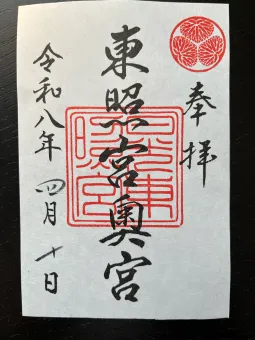 奉拝
東照宮奥宮
令和八年 四月 十日